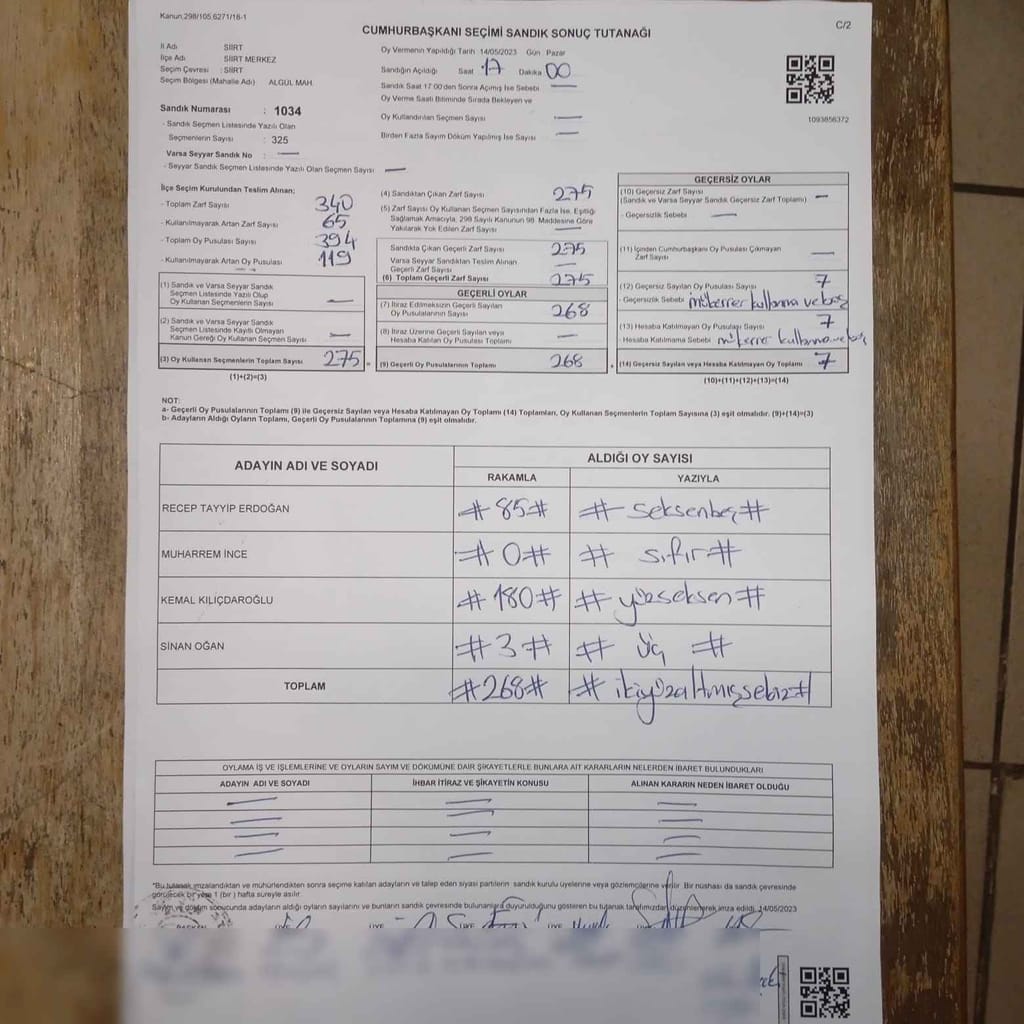 Kanun:298/105,6271/16-1
C/2
CUMHURBAŞKANI SEÇİMİ SANDIK SONUÇ TUTANAĞI
İl Adı SİİRT
İlçe Adı SİİRT MERKEZ
Seçim Çevresi : SİİRT
Seçim Bölgesi (Mahalle Adı) ALGÜL MAH.
Oy Vermenin Yapıldığı Tarih 14/05/2023 Gün Pazar
Sandığın Açıldığı Saat 17 Dakika 00
Sandık Saat 17:00'den Sonra Açılmış İse Sebebi —
Oy Verme Saati Bitiminde Sırada Bekleyen ve
Oy Kullandırılan Seçmen Sayısı —
Birden Fazla Sayım Döküm Yapılmış İse Sayısı —
1093856372
Sandık Numarası : 1034
- Sandık Seçmen Listesinde Yazılı Olan
Seçmenlerin Sayısı : 325
Varsa Seyyar Sandık No : —
- Seyyar Sandık Seçmen Listesinde Yazılı Olan Seçmen Sayısı —
İlçe Seçim Kurulundan Teslim Alınan;
- Toplam Zarf Sayısı 340
- Kullanılmayarak Artan Zarf Sayısı 65
- Toplam Oy Pusulası Sayısı 394
- Kullanılmayarak Artan Oy Pusulası 119
(1) Sandık ve Varsa Seyyar Sandık
Seçmen Listesinde Yazılı Olup
Oy Kullanan Seçmenlerin Sayısı —
(2) Sandık ve Varsa Seyyar Sandık
Seçmen Listesinde Kayıtlı Olmayan
Kanun Gereği Oy Kullanan Seçmenlerin Sayısı —
(3) Oy Kullanan Seçmenlerin Toplam Sayısı 275 =
(1)+(2)=(3)
(4) Sandıktan Çıkan Zarf Sayısı 275
(5) Zarf Sayısı Oy Kullanan Seçmen Sayısından Fazla İse, Eşitliği
Sağlamak Amacıyla, 298 Sayılı Kanunun 98. Maddesine Göre
Yakılarak Yok Edilen Zarf Sayısı —
Sandıkta Çıkan Geçerli Zarf Sayısı 275
Varsa Seyyar Sandıktan Teslim Alınan
Geçerli Zarf Sayısı —
(6) Toplam Geçerli Zarf Sayısı 275
GEÇERLİ OYLAR
(7) İtiraz Edilmeksizin Geçerli Sayılan
Oy Pusulalarının Sayısı 268
(8) İtiraz Üzerine Geçerli Sayılan veya
Hesaba Katılan Oy Pusulası Toplamı —
(9) Geçerli Oy Pusulalarının Toplamı 268 +
GEÇERSİZ OYLAR
(10) Geçersiz Zarf Sayısı
(Sandık ve Varsa Seyyar Sandık Geçersiz Zarf Toplamı) —
- Geçersizlik Sebebi —
(11) İçinden Cumhurbaşkanı Oy Pusulası Çıkmayan
Zarf Sayısı —
(12) Geçersiz Sayılan Oy Pusulası Sayısı 7
- Geçersizlik Sebebi mükerrer kullanma ve boş
(13) Hesaba Katılmayan Oy Pusulası Sayısı 7
- Hesaba Katılmama Sebebi mükerrer kullanma ve boş
(14) Geçersiz Sayılan veya Hesaba Katılmayan Oy Toplamı 7
(10)+(11)+(12)+(13)=(14)
NOT:
a- Geçerli Oy Pusulalarının Toplamı (9) ile Geçersiz Sayılan veya Hesaba Katılmayan Oy Toplamı (14) Toplamları, Oy Kullanan Seçmenlerin Toplam Sayısına (3) eşit olmalıdır. (9)+(14)=(3)
b- Adayların Aldığı Oyların Toplamı, Geçerli Oy Pusulalarının Toplamına (9) eşit olmalıdır.
ADAYIN ADI VE SOYADI
ALDIĞI OY SAYISI
RAKAMLA YAZIYLA
RECEP TAYYİP ERDOĞAN #85# #seksenbeş#
MUHARREM İNCE #0# # sıfır#
KEMAL KILIÇDAROĞLU #180# #yüzseksen#
SİNAN OĞAN #3# # üç #
TOPLAM #268# # ikiyüzaltmışsekiz#
OYLAMA İŞ VE İŞLEMLERİNE VE OYLARIN SAYIM VE DÖKÜMÜNE DAİR ŞİKAYETLERLE BUNLARA AİT KARARLARIN NELERDEN İBARET BULUNDUKLARI
ADAYIN ADI VE SOYADI İHBAR İTİRAZ VE ŞİKAYETİN KONUSU ALINAN KARARIN NEDEN İBARET OLDUĞU
"Bu tutanak imzalandıktan ve mühürlendikten sonra seçime katılan adayların ve talep eden siyasi partilerin sandık kurulu üyelerine veya gözlemcilerine verilir. Bir nüshası da sandık çevresinde
görülecek bir yere 1 (bir) hafta süreyle asılır.
Sayım ve döküm sonucunda adayların aldığı oyların sayılarını ve bunların sandık çevresinde bulunanlara duyurulduğunu gösteren bu tutanak tarafımızdan düzenlenerek imza edildi. 14/05/2023
BAŞKAN ÜYE ÜYE ÜYE